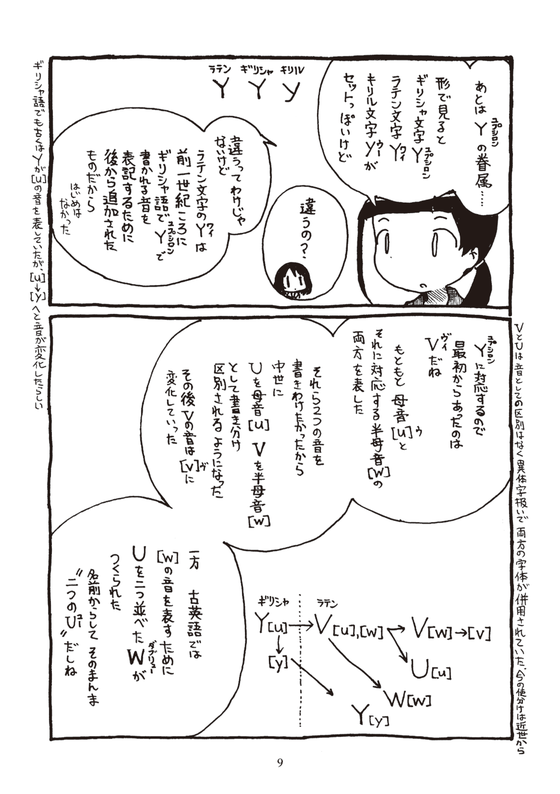 あとは Yの眷属……
ユプシロン
形で見ると
ギリシャ文字Y
ユプシロン
ラテン文字Y
ワイ
キリル文字Yが
ウー
セットっぽいけど
ラテン ギリシャ キリル
Y Y У
違うの?
違うってわけじゃ
ないけど
ラテン文字のYは
ワイ
前一世紀ころに
ギリシャ語でYで
ユプシロン
書かれる音を
表記するために
後から追加された
ものだから
はじめは
なかった
ギリシャ語でももともとはYが[u]の音を表していたが、[u]→[y]へと音が変化したらしい
VとUは音としての区別はなく異体字扱いで両方の字体が併用されていた、今の使分けは近世から
Yに対応するので
ユプシロン
最初からあったのは
Vだね
ヴィ
もともと 母音[u]と
ウ
それに対応する半母音[w]の
両方を表した
それら2つの音を
書きわけたかったから
中世に
Uを母音[u] Vを半母音[w]
として書き分け
区別されるようになった
その後Vの音は[v]に
ヴ
変化していった
一方 古英語では
[w]の音を表すために
Uを二つ並べたWが
ダブリュー
つくられた
名前からして そのまんま
"二つのU"だしね
ユー
ギリシャ ラテン
Y[u]→V[u],[w]→V[w]→[v]
[y]
U[u]
W[w]
Y[y]
9